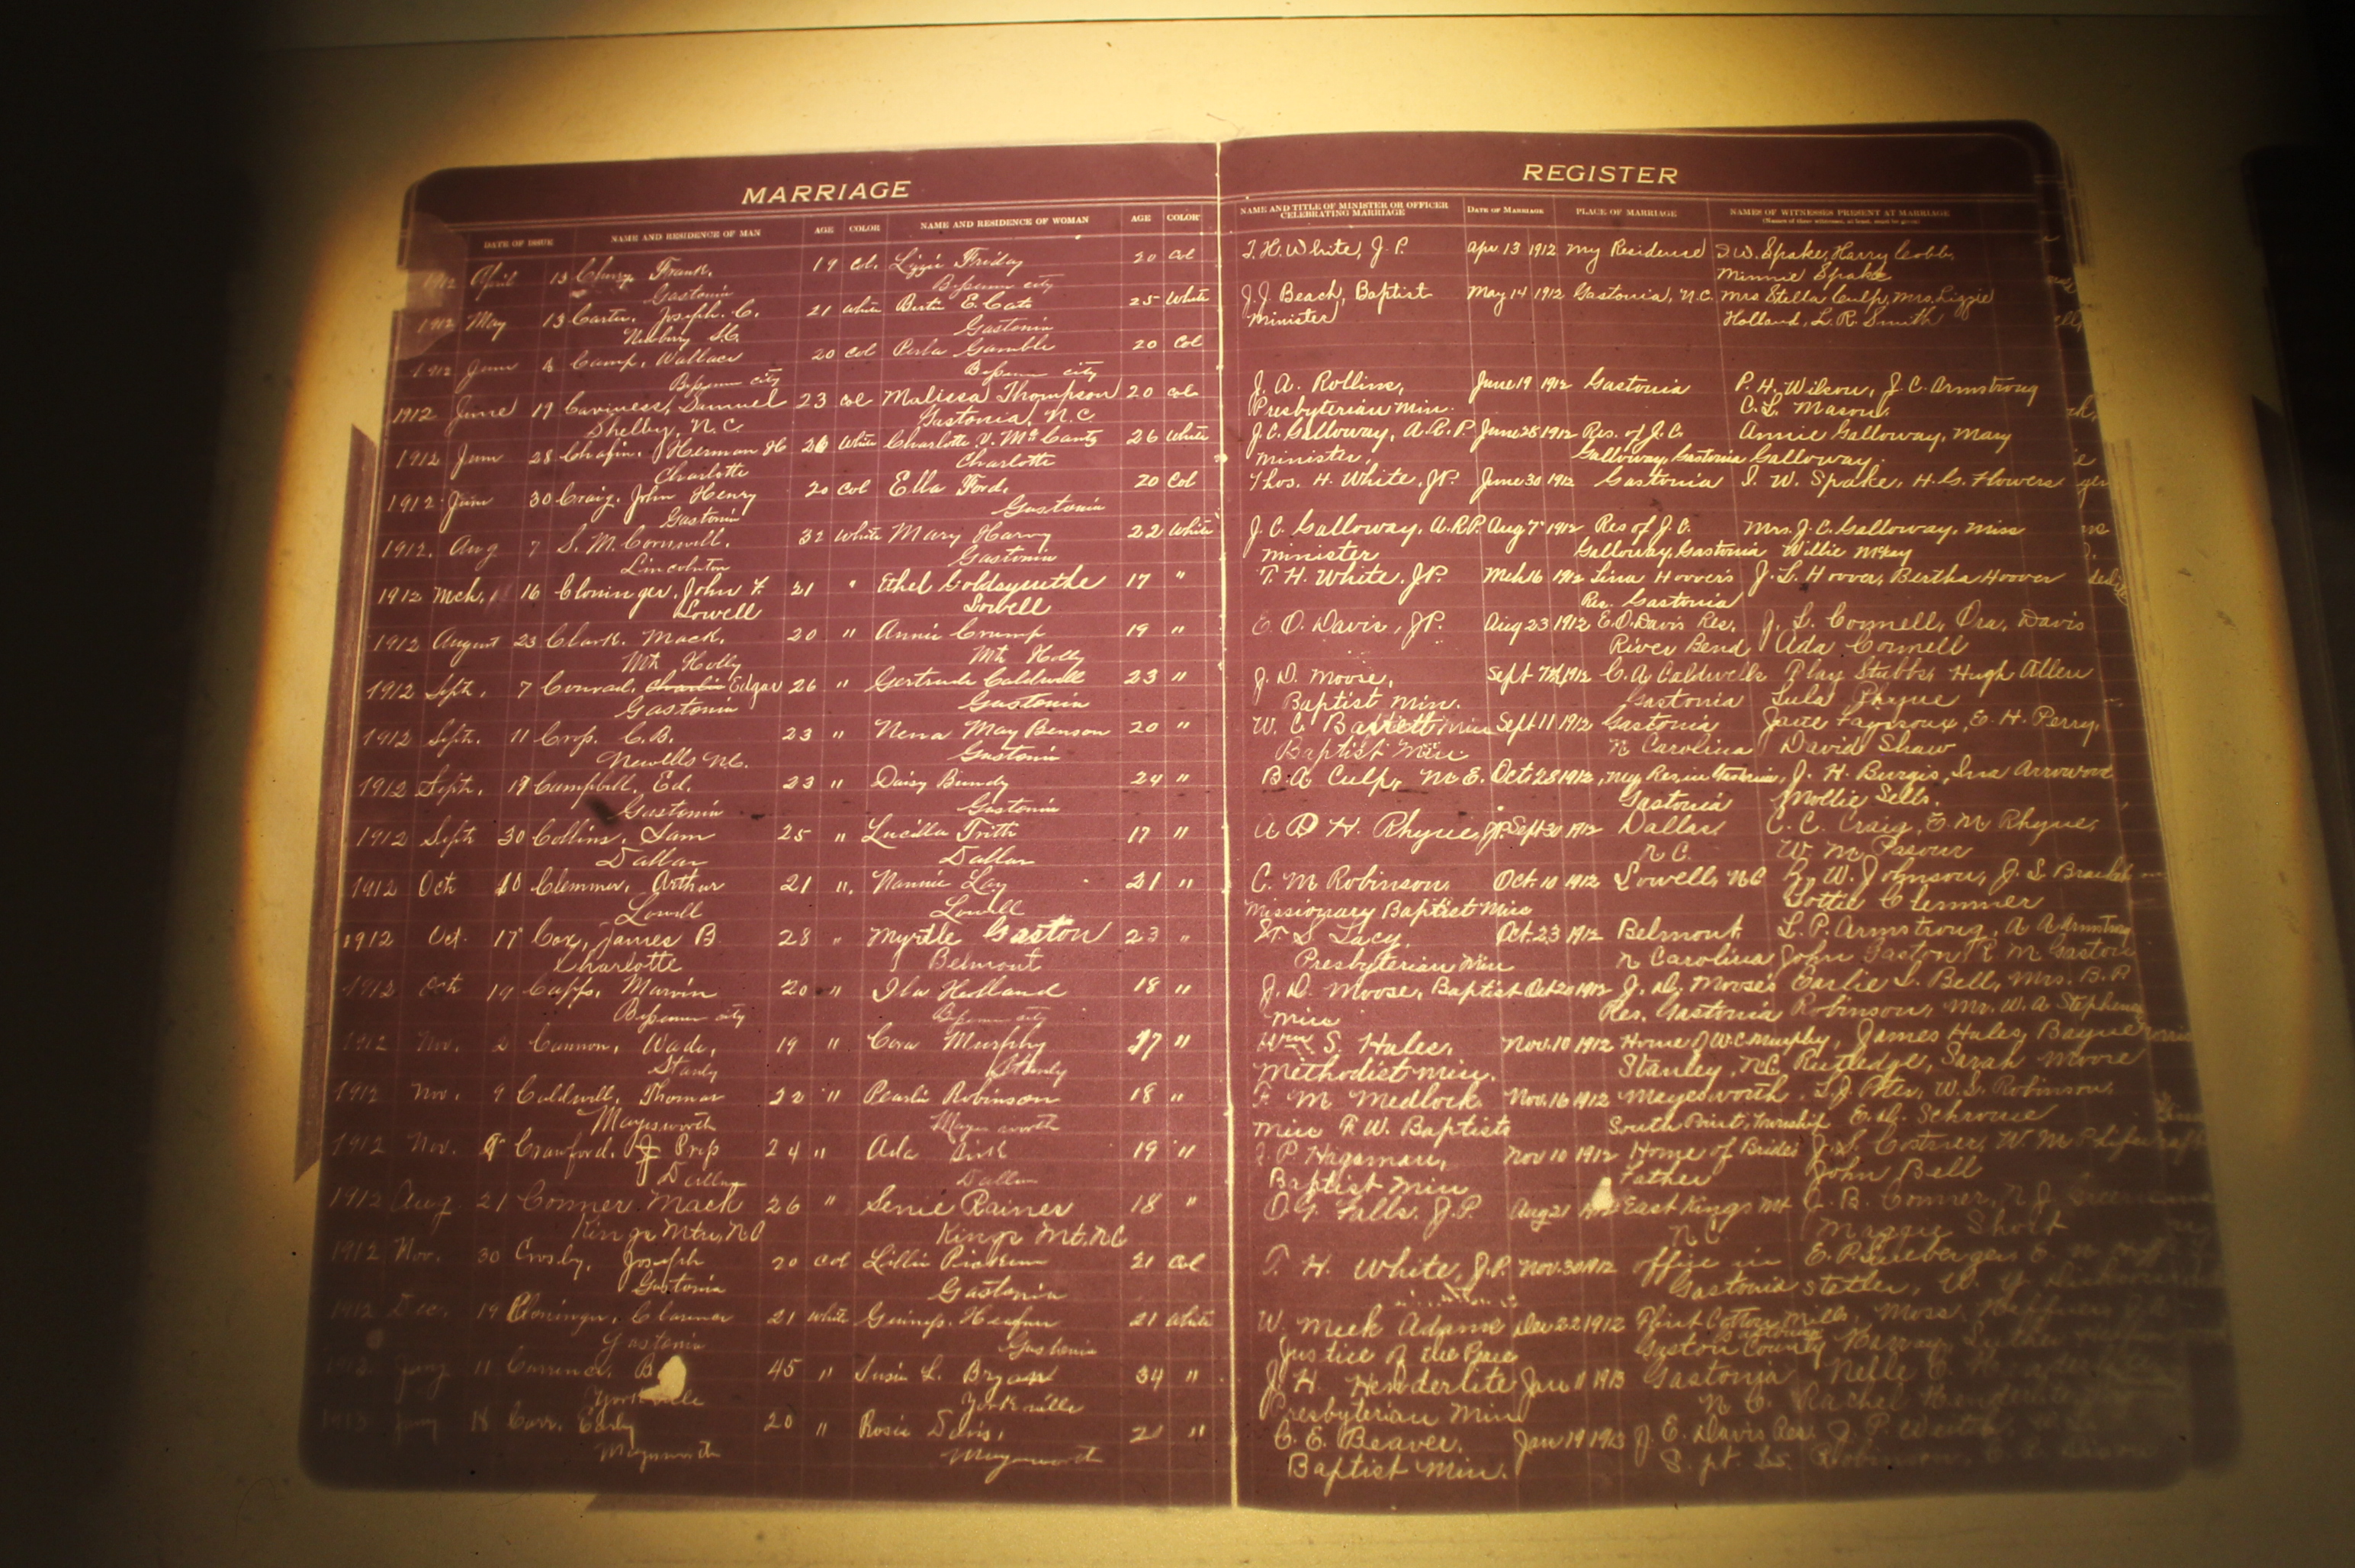 MARRIAGE REGISTER
DATE OF ISSUE NAME AND RESIDENCE OF MAN AGE COLOR NAME AND RESIDENCE OF WOMAN AGE COLOR NAME AND TITLE OF MINISTER OR OFFICER CELEBRATING MARRIAGE DATE OF MARRIAGE PLACE OF MARRIAGE NAMES OF WITNESSES PRESENT AT MARRIAGE
1912 April 13 Frank. 19 Col. Lizzie Friday 20 Col T. H. White, J. P. Apr 13 1912 My Residence J. W. Spake, Harry Cobb,
Gastonia Bessemer city Minnie Spake
1912 May 13 Carter, Joseph. C. 21 White Bertie E. Cato 25 White J. J. Beach, Baptist May 14 1912 Gastonia, N.C. Mrs Stella Culp, Mrs. Lizzie
Newbury S.C. Gastonia Minister Holland, L. R. Smith
1912 June Camp, Wallace 20 Col Gamble 20 Col
Bessemer city Bessemer city
1912 June 19 Caviness, Samuel 23 col Malissa Thompson 20 col J. A. Rollins, June 19 1912 Gastonia P. H. Wilson, J. C. Armstrong
Shelby, N.C Gastonia, N.C Presbyterian Min. C. L. Mason
1912 June 28 Chapin. Herman H 26 White Charlotte V. McCants 26 White J. C. Galloway, A. R. P. June 28 1912 Res. of J. C. Annie Galloway, Mary
Charlotte Charlotte Minister, Galloway, Gastonia Galloway.
1912 June 30 Craig, John Henry 20 Col Ella Ford. 20 Col Thos. H. White, J.P. June 30 1912 Gastonia J. W. Spake, H. G. Flowers
Gastonia Gastonia
1912. Aug 7 S. M. Cornwell. 32 White Mary Harvy 22 White J. C. Galloway, A.R.P. Aug 7 1912 Res of J. C. Mrs. J. C. Galloway, Miss
Lincolnton Gastonia Minister Galloway, Gastonia Willie McKay
1912 Mch. 16 Cloninger, John F. 21 " Ethel Goldsymthe 17 " T. H. White, J.P. Mch 16 1912 Lina Hoover's J. L. Hoover, Bertha Hoover
Lowell Lowell Res. Gastonia
1912 August 23 Clark. Mack. 20 " Annie Crump 19 " E. O. Davis, J.P. Aug 23 1912 E. O. Davis Res. J. L. Connell, Ora, Davis
Mt Holly Mt Holly River Bend Ada Connell
1912 Sept. 7 Conrad, Charlie Edgar 26 " Gertrude Caldwell 23 " J. D. Moore, Sept 7th 1912 C. A. Caldwells Play Stubbs, Hugh Allen
Gastonia Gastonia Baptist Min. Gastonia Lula Rhyne
1912 Sept. 11 C. B. 23 " Nena May Benson 20 " W. C. Barrett Min Sept 11 1912 Gastonia Jane Fayssoux, E. H. Perry,
Newells N.C. Gastonia Baptist Min N Carolina David Shaw
1912 Sept. 19 Campbell, Ed. 23 " Daisy Bundy 24 " B. A. Culp, M. E. Oct. 28 1912, My Res. in Gastonia, J. H. Burgis, Ina Arrowood
Gastonia Gastonia Gastonia Mollie Sells.
1912 Sept 30 Collins, Sam 25 " Lucilla Frith 17 " A D H. Rhyne, J.P. Sept 30 1912 Dallas C. C. Craig, E. M Rhyne,
Dallas Dallas N C. W. M Pasour
1912 Oct 10 Clemmer, Arthur 21 ". Nannie Lay 21 " C. M Robinson, Oct. 10 1912 Lowell, NC R. W. Johnson, J. S.
Lowell Lowell Missionary Baptist Min Lottie Clemmer
1912 Oct. 17 Cox, James B 28 " Myrtle Gaston 23 " Lacy, Oct. 23 1912 Belmont L. P. Armstrong, A A Armstrong
Charlotte Belmont Presbyterian Min N Carolina John Gaston, R M Gaston
1912 Oct 19 Capps, Marvin 20 " Ila Holland 18 " J. D. Moose, Baptist Oct 20 1912 J. D. Moose's Earlie S. Bell, Mrs. B. P.
Bessemer city Bessemer city Min Res. Gastonia Robinson, Mr. W. A. Stephens
1912 Nov. 2 Cannon, Wade, 19 " Cora Murphy 17 " Wm S. Hales, Nov. 10 1912 Home of W.C. Murphy, James Hales, Bayne
Stanly Stanly Methodist Min. Stanley, N.C. Rutledge, Sarah Moore
1912 Nov. 9 Caldwell, Thomas 22 " Pearlie Robinson 18 " F. M Medlock Nov. 16 1912 Mayesworth, W. S. Robinson,
Mayesworth Mayesworth Min F. W. Baptists South Point, Township
1912 Nov. 9 Crawford. J Prep 24 " Ada 19 " J. P Hagaman, Nov 10 1912 Home of Brides J. S. Costner, W M
Dallas Dallas Baptist Min Father John Bell
1912 Aug. 21 Conner Mack 26 " Senie Raines 18 " O. G. Falls. J. P. Aug 21 1912 East Kings Mt B. Conner,
Kings Mtn, NC Kings Mt. NC N C. Maggie Short
1912 Nov. 30 Crosby, Joseph 20 Col Lillie 21 Col T. H. White, J.P. Nov. 30 1912 office in E. P.
Gastonia Gastonia Gastonia
1912 Dec. 19 Cloninger, Clarence 21 White 21 White W. Meek Adams Dec 22 1912 Flint Cotton Mills, Moss
Gastonia Gastonia Justice of the Peace Gaston County
1913 Jany 11 B 45 " Susie L. Bryan 34 " J. H. Henderlite Jan 11 1913 Gastonia Nelle
Yorkville Yorkville Presbyterian Min N C. Rachel Henderlite
1913 Jany 18 Carr. Early 20 " Rosie Davis, 21 " C. E. Beaver. Jan 19 1913 J. E. Davis Res.
Mayesworth Mayesworth Baptist Min. S. pt. Robinson,